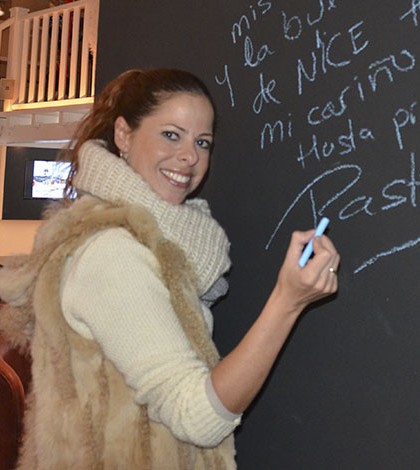 mis
y la bu
de NICE
mi cariño
Hasta p
Past